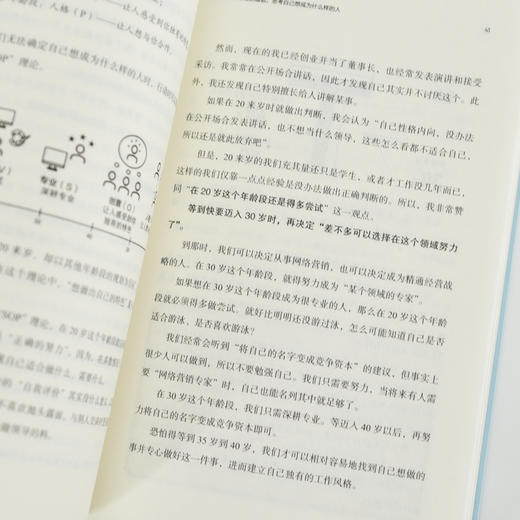 年龄段；人格（P）——让人感受到你独
——让人想与你合作。
们无法确定自己想成为什么样的人时，
OP”理论。
专业（S）
深耕专业
创富（O）
20来岁，却以其他年龄段的
这个理论中，“想做出自己的
SOP”理论，在20岁这个年龄段
“正确的努力”。因为，
己适合做什么、需要什么。
的“自我评价”其实没什么
不喜欢抛头露面、与别人
做领导的料。
思考自己想成为什么样的人
41
然而，现在的我已经创业并当了董事长，也经常发表演讲和接受
采访。我常常在公开场合讲话，因此才发现自己其实并不讨厌这个。此
外，我还发现自己特别擅长给人讲解某事。
如果在20来岁时就做出判断，我会认为“自己性格内向，没办法
在公开场合发表讲话，也不想当什么领导，这些怎么看都不适合自己，
所以还是就此放弃吧”。
但是，20来岁的我们充其量还只是学生，或者才工作没几年而已，
这样的我们仅靠一点点经验是没办法做出正确判断的。所以，我非常赞
同“在20岁这个年龄段还是得多尝试”这一观点。
等到快要迈入30岁时，再决定“差不多可以选择在这个领域努力
了”。
到那时，我们可以决定从事网络营销，也可以决定成为精通经营战
略的人。在30岁这个年龄段，就得努力成为“某个领域的专家”。
如果想在30岁这个年龄段成为很专业的人，那么在20岁这个年龄
段就必须得多做尝试。就好比明明还没游过泳，怎么可能知道自己是否
适合游泳、是否喜欢游泳？
我们经常会听到“将自己的名字变成竞争资本”的建议，但事实上
很少人可以做到，所以不要勉强自己。我们只需要努力，当将来有人需
要“网络营销专家”时，自己也能名列其中就足够了。
在30岁这个年龄段，我们只需深耕专业。等迈入40岁以后，再努
力将自己的名字变成竞争资本即可。
恐怕得等到35岁到40岁，我们才可以相对容易地找到自己想做的
事并专心做好这一件事，进而建立自己独有的工作风格。